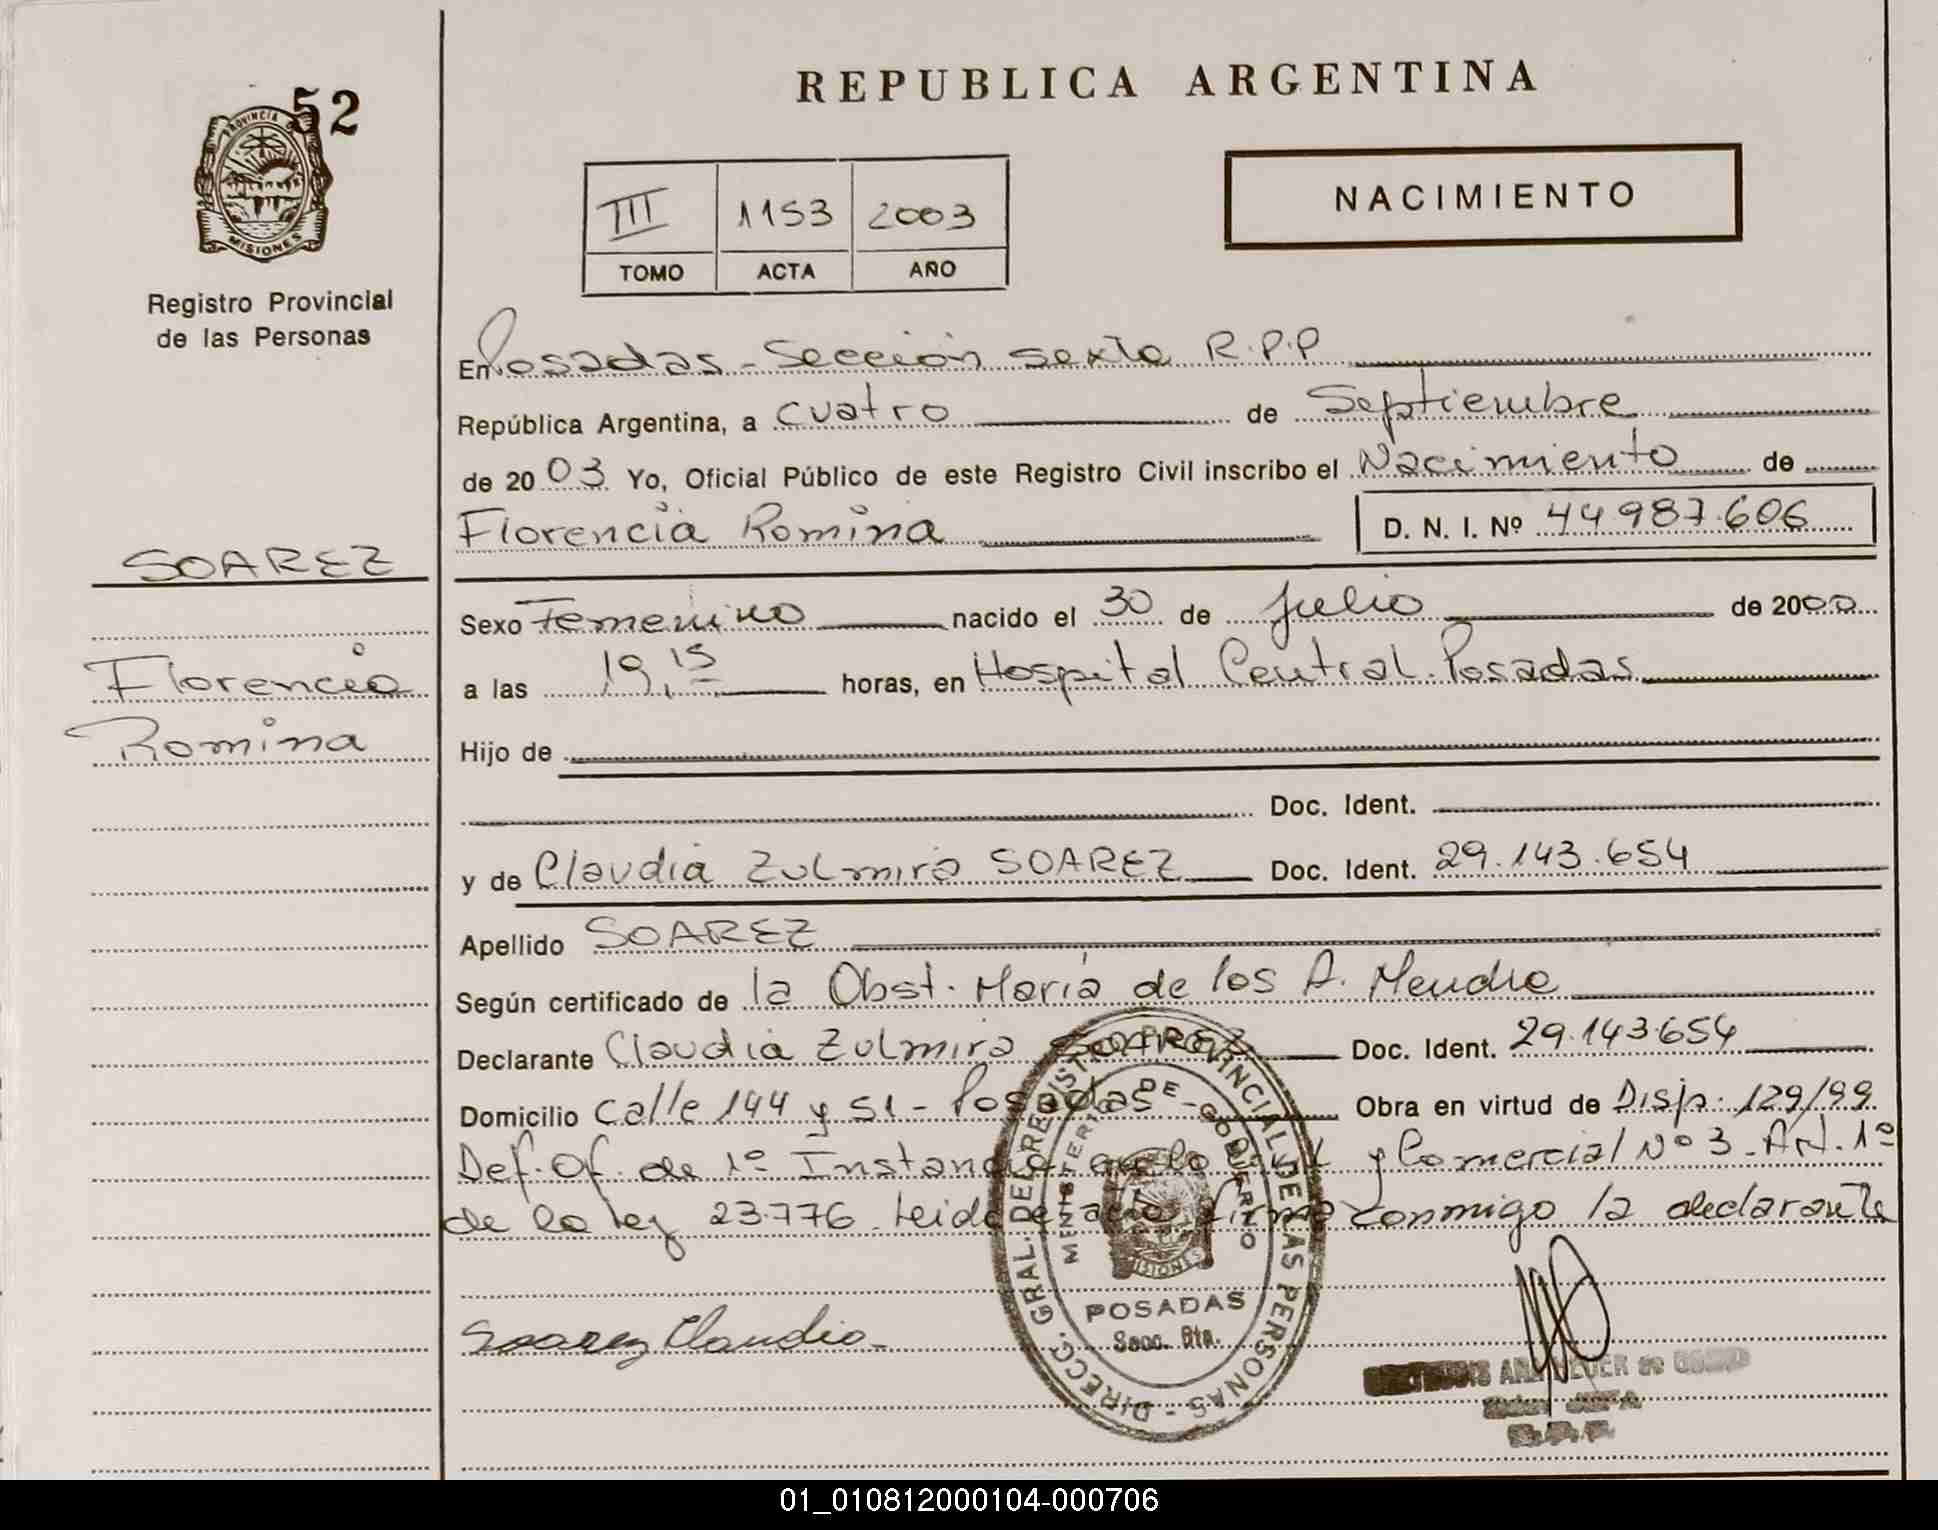 52
PROVINCIA DE
MISIONES
Registro Provincial
de las Personas
REPUBLICA ARGENTINA
III 1153 2003
TOMO ACTA AÑO
NACIMIENTO
En Posadas - Sección sexta R.P.P
República Argentina, a cuatro de Septiembre
de 2003 Yo, Oficial Público de este Registro Civil inscribo el Nacimiento de
Florencia Romina D. N. I. Nº 44.987.606
SOAREZ
Florencia
Romina
Sexo Femenino nacido el 30 de Julio de 2000
a las 19,15 horas, en Hospital Central. Posadas
Hijo de
Doc. Ident.
y de Claudia Zulmira SOAREZ Doc. Ident. 29.143.654
Apellido SOAREZ
Según certificado de la Obst. María de los A. Mendie
Declarante Claudia Zulmira SOAREZ Doc. Ident. 29.143.654
Domicilio Calle 144 y 51 - Posadas - Obra en virtud de Disp. 129/99
Def. Of. de 1º Instancia en lo Civil y Comercial Nº 3. Art. 1º
de la ley 23.776. Leida el acta firma conmigo la declarante
Soarez Claudia
DIRECC. GRAL. DEL REGISTRO PROVINCIAL DE LAS PERSONAS
MINISTERIO DE GOBIERNO
MISIONES
POSADAS
Secc. 6ta.
R.P.P.
01_010812000104-000706